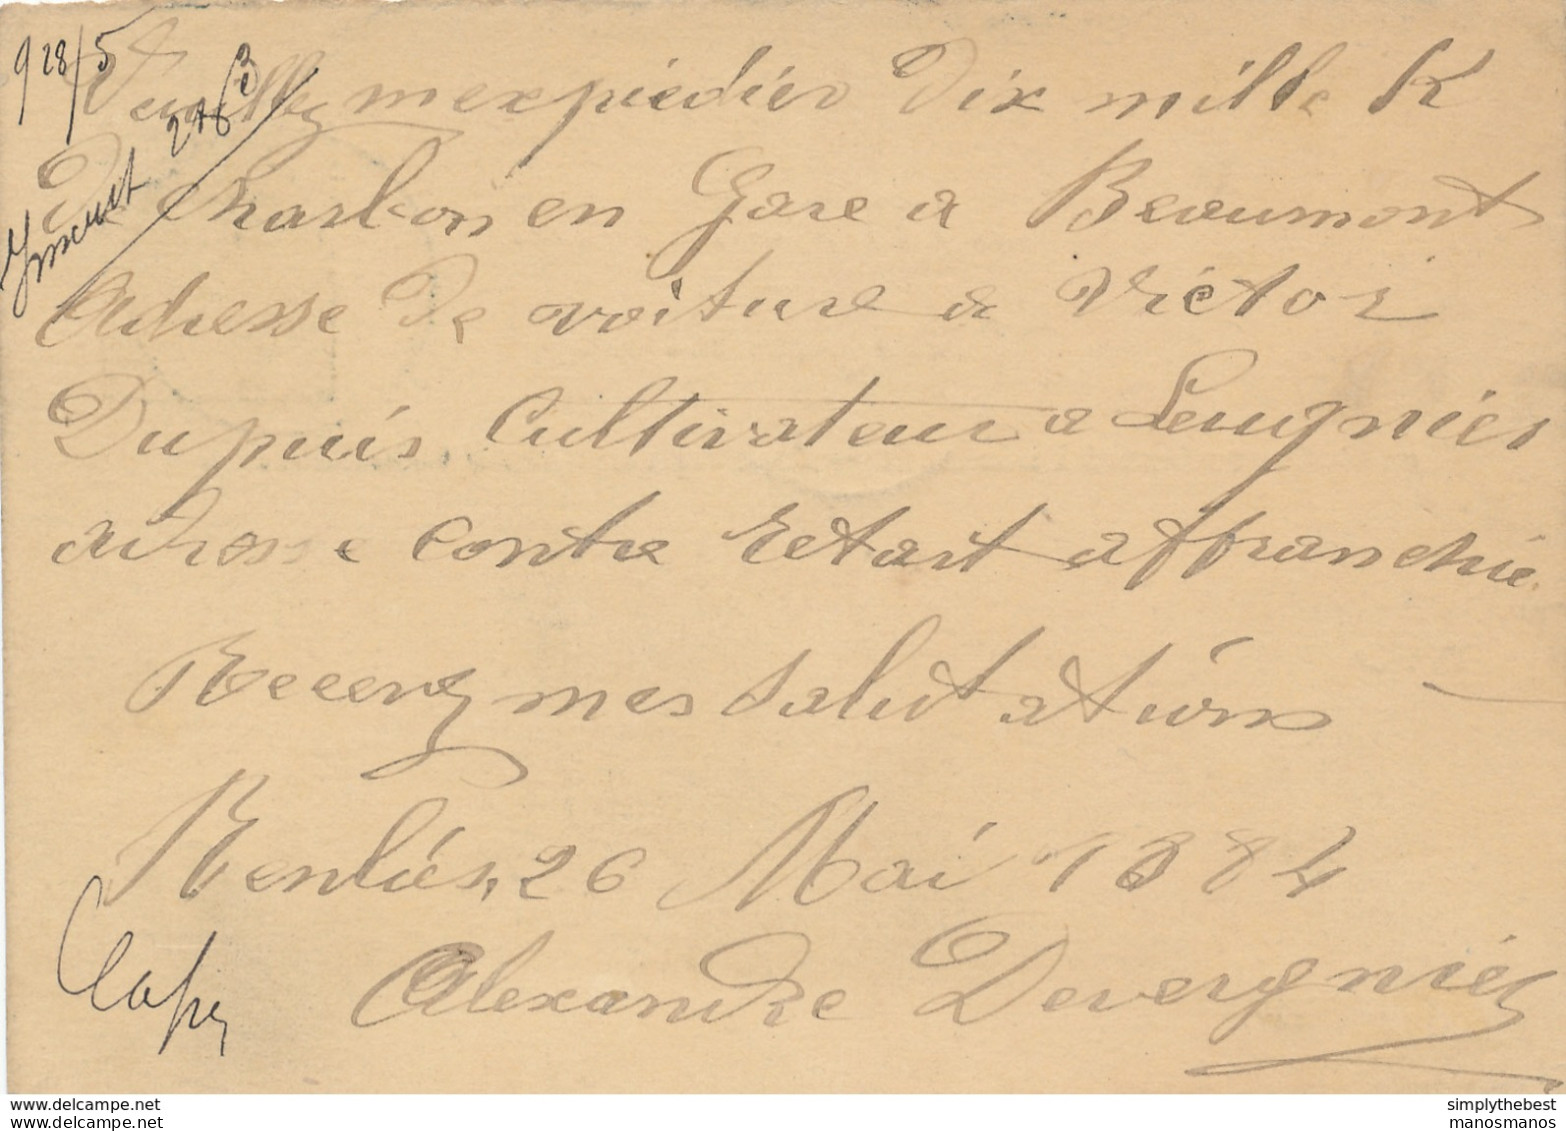 9 28/5
Veuillez mexpiedier Dix mille K
De Charbon en Gare a Beaumont
Adresse De voiture a Victor
Dupuis Cultivateur a Leugnies
adresse contre Retart affranchie.
Recevez mes salutations
Renliés, 26 Mai 1884
Alexandre Devergnies
simplythebest
manosmanos